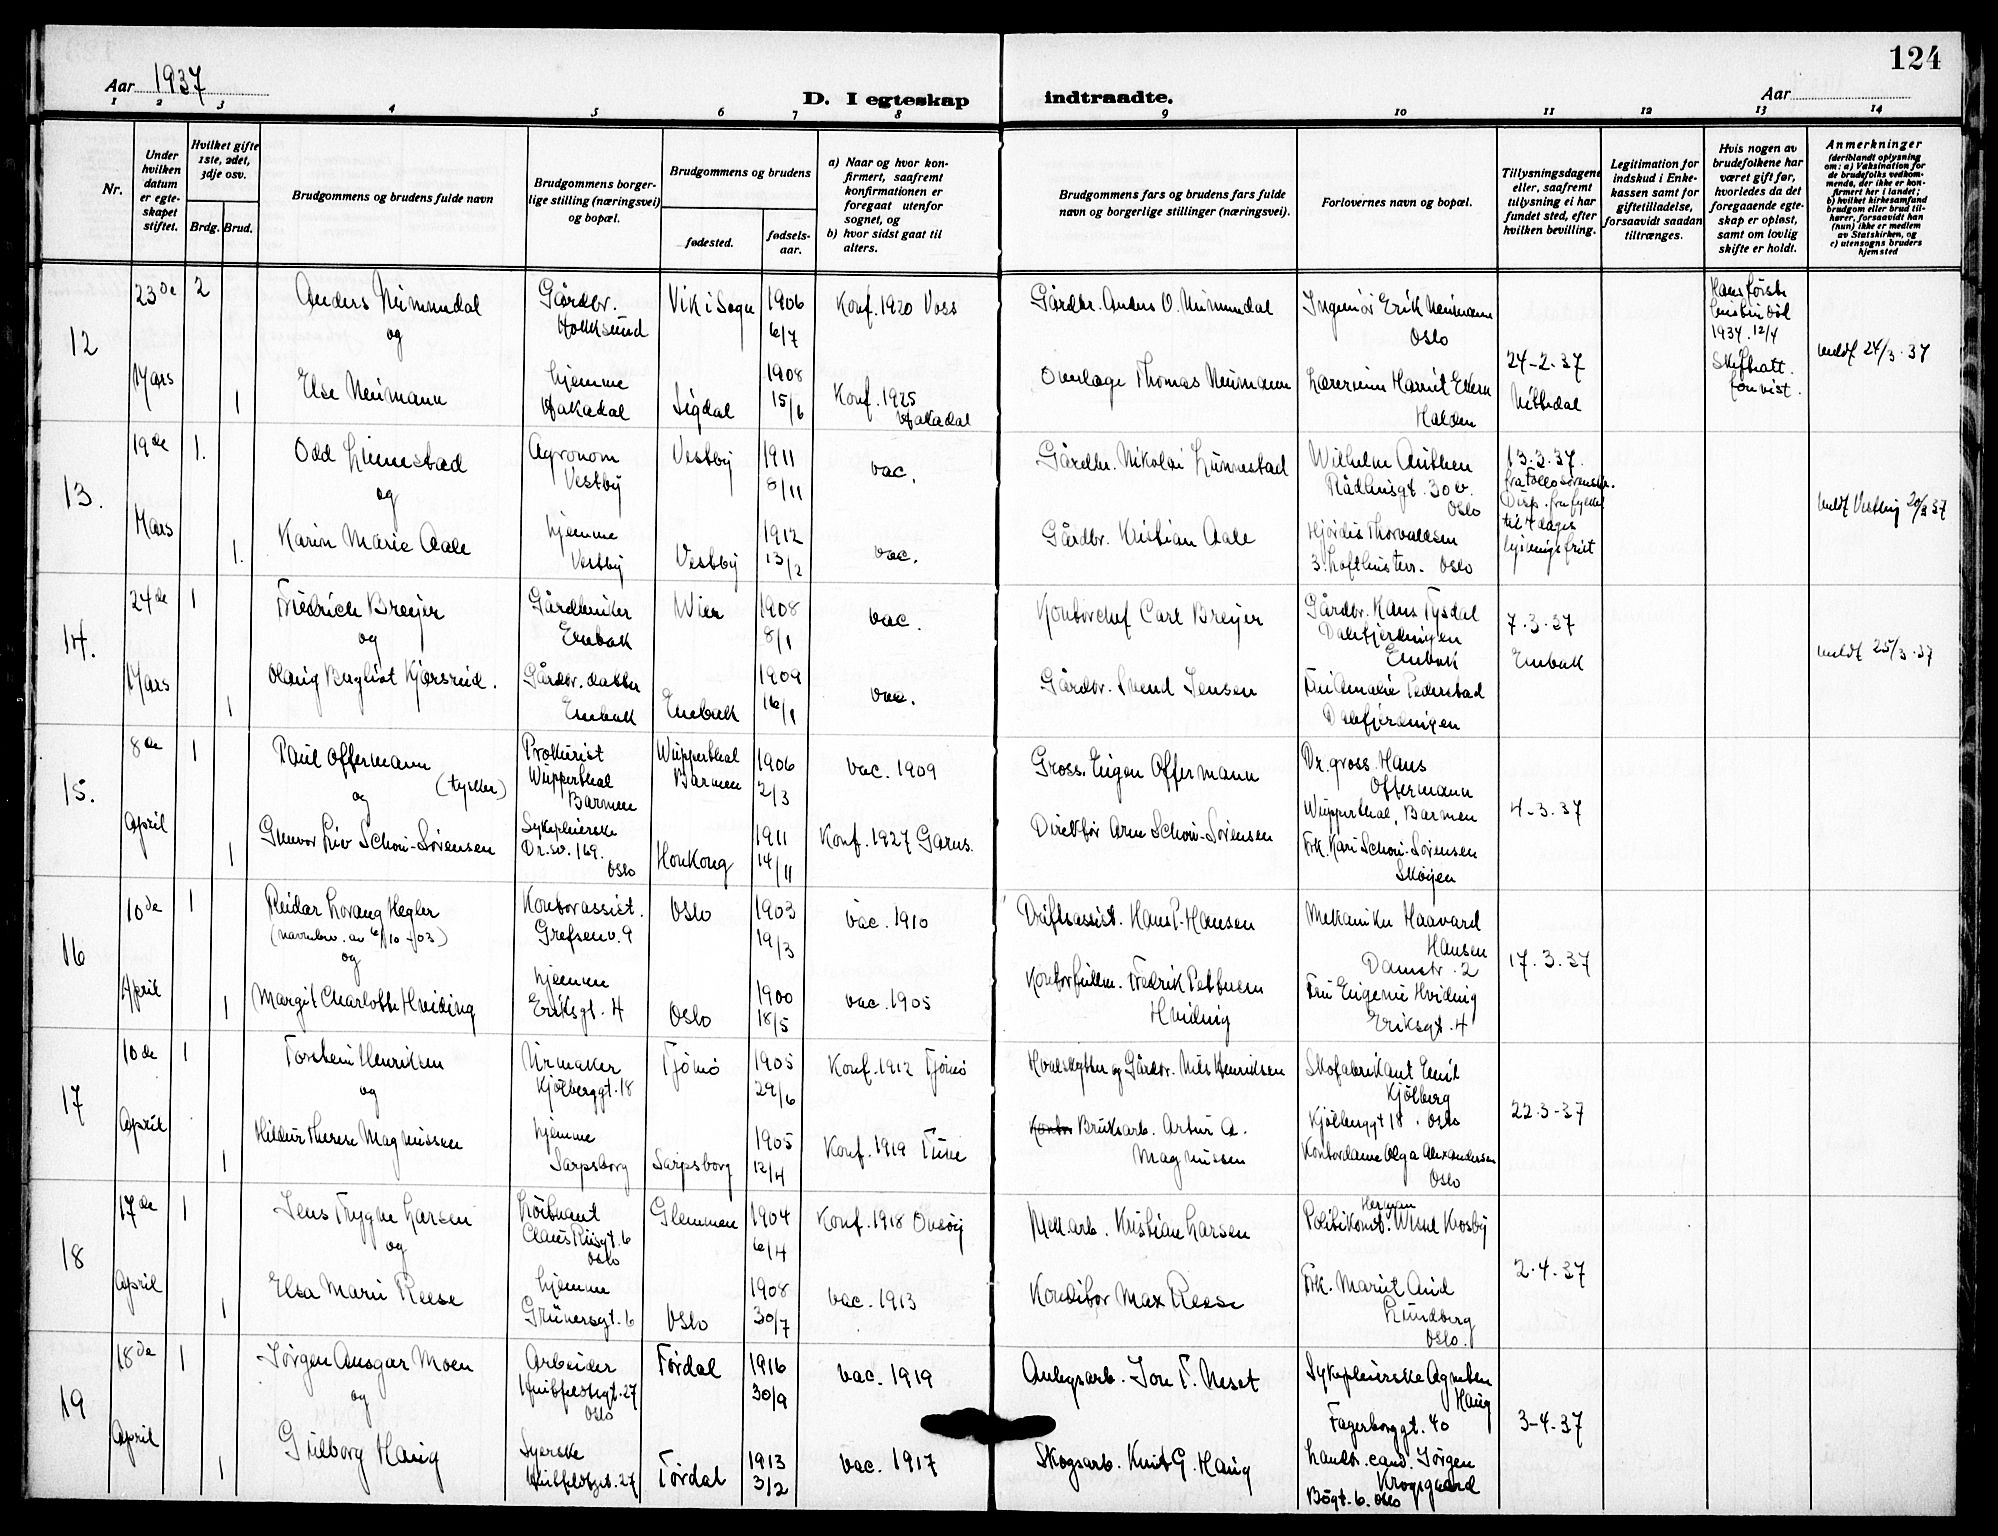 124
Aar 1937
D. I egteskap indtraadte.
Aar
1 2 3 4 5 6 7 8 9 10 11 12 13 14
Nr.
Under hvilken datum er egteskapet stiftet.
Hvilket gifte 1ste, 2det, 3dje osv.
Brdg. Brud.
Brudgommens og brudens fulde navn
Brudgommens borgerlige stilling (næringsvei) og bopæl.
Brudgommens og brudens
fødested.
fødselsaar.
a) Naar og hvor konfirmert, saafremt konfirmationen er foregaat utenfor sognet, og
b) hvor sidst gaat til alters.
Brudgommens fars og brudens fars fulde navn og borgerlige stillinger (næringsvei).
Forlovernes navn og bopæl.
Tillysningsdagene eller, saafremt tillysning ei har fundet sted, efter hvilken bevilling.
Legitimation for indskud i Enkekassen samt for giftetilladelse, forsaavidt saadan tiltrænges.
Hvis nogen av brudefolkene har været gift før, hvorledes da det foregaaende egteskap er opløst, samt om lovlig skifte er holdt.
Anmerkninger
(deriblandt oplysning om: a) Vaksination for de brudefolks vedkommende, der ikke er konfirmert her i landet; b) hvilket kirkesamfund brudgom eller brud tilhører, forsaavidt han (hun) ikke er medlem av Statskirken, og c) utensogns bruders hjemsted
12
23de Mars
2
Anders Nummedal
og
Gårdbr.
Vik i Sogn
1906
6/7
Konf. 1920 Voss
Gårdbr. Anders O. Nummedal
Ingeniør Erik Neumann
Oslo
24-2.37
Nittedal
Hans første
1934. 12/4
Skifteatt.
forevist.
meldt 24/3.37
1
Else Neumann
hjemme
Hakadal
Sigdal
1908
15/6
Konf. 1925
Hakadal
Overlæge Thomas Neumann
Lærerinne Harriet
Halden
13.
19de Mars
1.
Odd Linnestad
og
Agronom
Vestby
Vestby
1911
8/11
vac.
Gårdbr. Nikolai Linnestad
Wilhelm
Rådhusgt. 30 b.
Oslo
13.3.37.
fra Follo sorenskr.
til 4 dages
lysningsfrist
meldt Vestby 20/3 37
1.
Karin Marie Aale
hjemme
Vestby
Vestby
1912
13/2
vac.
Gårdbr. Kristian Aale
Hjørdis Thorvaldsen
3. Lofthusterr. Oslo
14.
24de Mars
1
Friedrich Breyer
og
Gårdbruker
Enebak
Wien
1908
8/1
vac.
Kontorchef Carl Breyer
Gårdbr. Hans Tysdal
Dalefjerdingen
Enebak
7.3.37
Enebak
meldt 25/3.37
1
Olaug Bugliot Kjærsrud.
Gårdbr. datter
Enebak
Enebak
1909
16/1
vac.
Gårdbr. Svend Jensen
Fru Amalie Pederstad
Dalefjerdingen
15.
8de April
1
Paul Offermann
(tysker)
og
Prokurist
Wupperthal
Barmen
Wupperthal
Barmen
1906
2/3
vac. 1909
Gross. Eugen Offermann
Dr. gross. Hans
Offermann
Wupperthal, Barmen
4-3.37
1
Gunvor Liv Schou-Sørensen
Sykepleierske
Dr.sv. 169.
Oslo
Honkong
1911
14/11
Konf. 1927 Garns.
Direktør Arne Schou-Sørensen
Frk. Kari Schou-Sørensen
Skøyen
16
10de April
1
Reidar Lovang Hegler
(navnebev. av 6/10-03)
og
Kontorassist.
Grefsenv. 9
Oslo
1903
19/3
vac. 1910
Driftsassist. Hans P. Hansen
Mekaniker Haavard
Hansen
Damstr. 2
17.3.37
1
Margit Charlotte Hviding
hjemme
Eriksgt. 4
Oslo
1900
18/5
vac. 1905
Kontorfullm. Fredrik Pettersen
Hviding
Fru Eugenie Hviding
Eriksgt. 4
17
10de April
1
Torstein Henriksen
og
Urmaker
Kjølberggt. 18
Tjømø
1905
29/6
Konf. 1912 Tjømø
Hvalskytter og Gårdbr. Nils Henriksen
Skofabrikant Emil
Kjølberg
Kjølberggt 18. Oslo
22.3-37
1
Hildur Therese Magnussen
hjemme
Sarpsborg
Sarpsborg
1905
12/4
Konf. 1919 Tune
Bruksarb. Artur A.
Magnussen
Kontordame Olga Alexandersen
Oslo
18
17de April
1
Jens Trygve Larsen
og
Løitnant
Claus Riisgt. 6
Oslo
Glemmen
1904
6/4
Konf. 1918 Onsøy
Mek.arb. Kristian Larsen
Herman
Politikonst. Krosby
2.4.37
1
Elsa Marie Reese
hjemme
Grünersgt. 6
Oslo
1908
30/7
vac. 1913
Konditor Max Reese
Frk. Marit
Lundberg
Oslo.
19
18de April
1
Jørgen Ansgar Moen
og
Arbeider
Huitfeldtsgt. 27
Oslo
Tørdal
1916
30/9
vac. 1919
Anlegsarb. Jon T. Neset
Sykepleierske Agneten
Haug
Fagerborggt. 40
3-4.37
1
Gulborg Haug
Syerske
Huitfeldtsgt. 27
Tørdal
1913
3/2
vac. 1917
Skogsarb. Knut G. Haug
Landbr. cand. Jørgen
Krogsgaard
Bögt. 6. Oslo